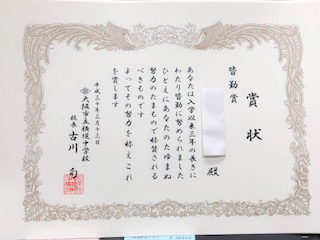 賞状
皆勤賞
殿
あなたは入学以来三年の長きに
わたり皆勤に努められました
ひとえにあなたのたゆまぬ
努力のたまもので称賛される
べきものです
よってその努力を称えこれ
を賞します
平成三十年三月十三日
大阪市立横堤中学校
校長 古川